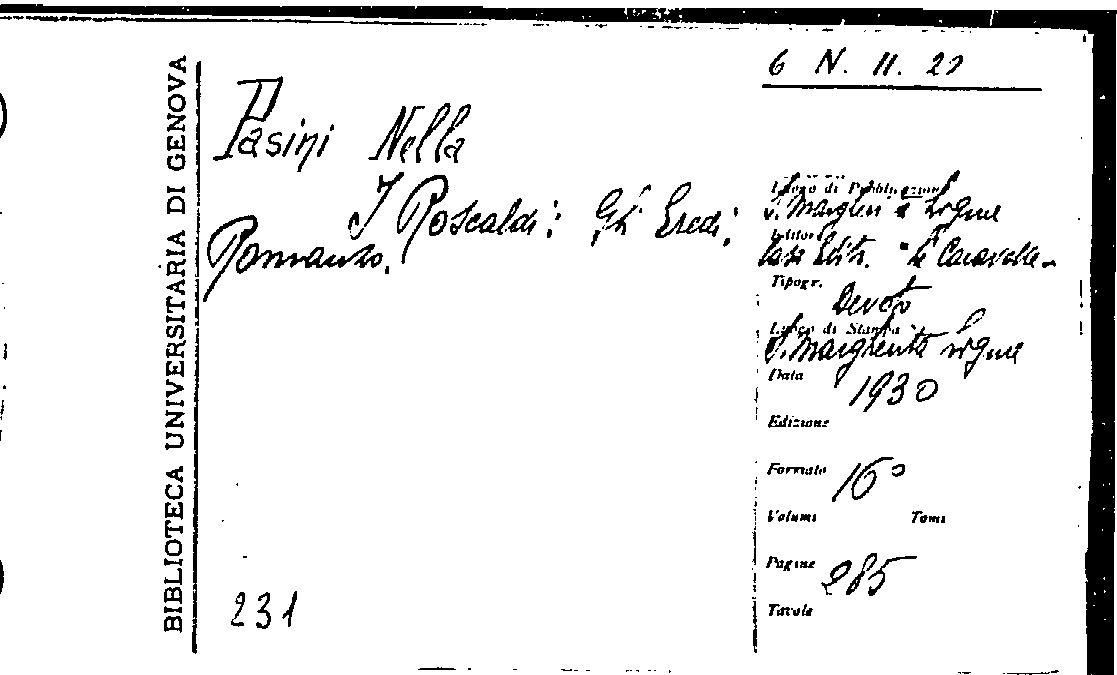 BIBLIOTECA UNIVERSITARIA DI GENOVA
6 N. II. 27
Pasini Nella
I Roscaldi: Gli Eredi.
Romanzo.
Luogo di Pubblicazione
S. Margherita Ligure
Editore
Casa Editr. "La Caravella"
Tipogr.
Devoto
Luogo di Stampa
S. Margherita Ligure
Data 1930
Edizione
Formato 16°
Volumi Tomi
Pagine 285
Tavole
231